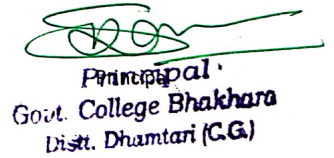 Principal
Govt. College Bhakhara
Distt. Dhamtari (C.G.)